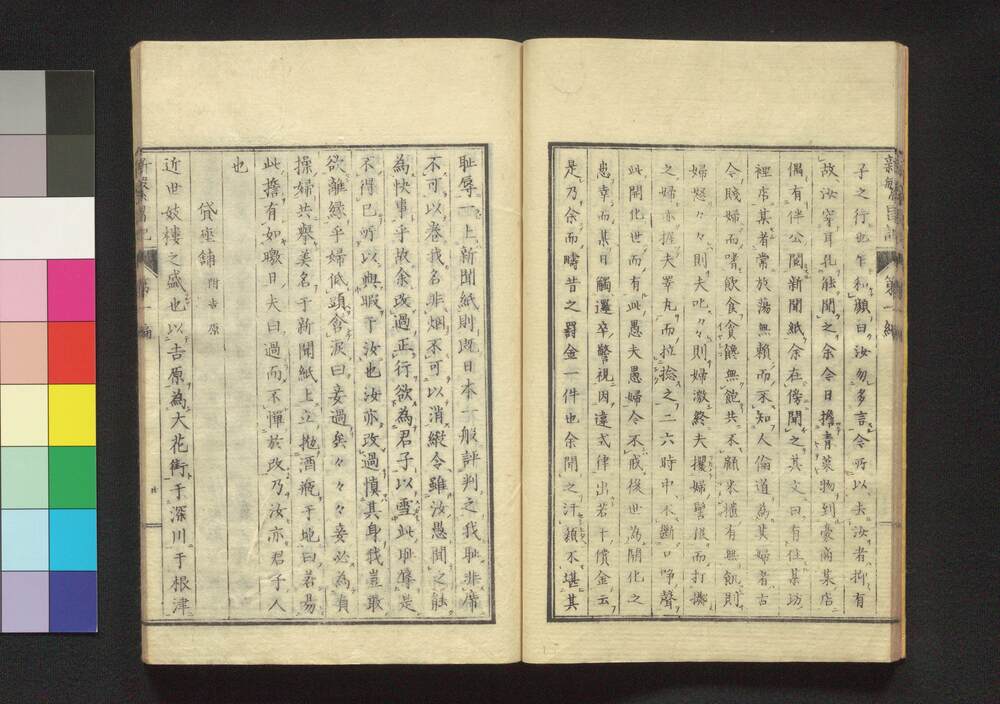 子之行也乍和顔曰汝勿多言令所以去汝者抑有
故汝穿耳孔能聞之余令日擔青菜物到豪商某店
偶有伴公閲新聞紙余在傍聞之其文曰有住某坊
裡店某者常放蕩無賴而不知人倫道為其婦者古
令賤婦而嗜飲食貪饞無飽共不顧米櫃有無飢則
婦怒々々則夫叱々々則婦激終夫攫婦髻推而打擲
之婦亦握夫睪丸而拉捻之二六時中不斷口啀聲
此開化世而有此愚夫愚婦令不戒後世為開化之
愚幸而某日觸邏卒警視因違式律出若干償金云
是乃余而疇昔之罰金一件也余聞之汗顔不堪其
恥辱一上新聞紙則既日本一般評判之我恥非席
不可以卷我名非烟不可以消縱令雖汝愚聞之能
為快事乎故余改過正行欲為君子以雪此恥辱是
不得已所以與暇于汝也汝亦改過慎其身我豈敢
欲離緣乎婦低頭含淚曰妾過矣々々々妾必為貞
操婦共舉美名于新聞紙上立抛酒瓶于地曰若易
此擔有如皦日夫曰過而不憚於改乃汝亦君子人
也
貸座舖 附吉原
近世妓樓之盛也以吉原為大花街于深川于根津